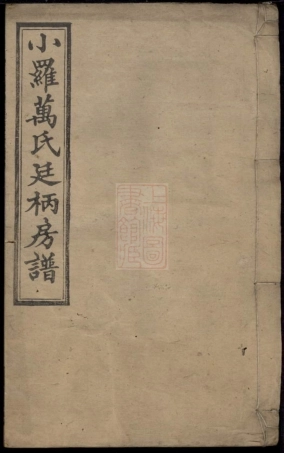 小羅萬氏廷柄房譜
上海圖
書館藏